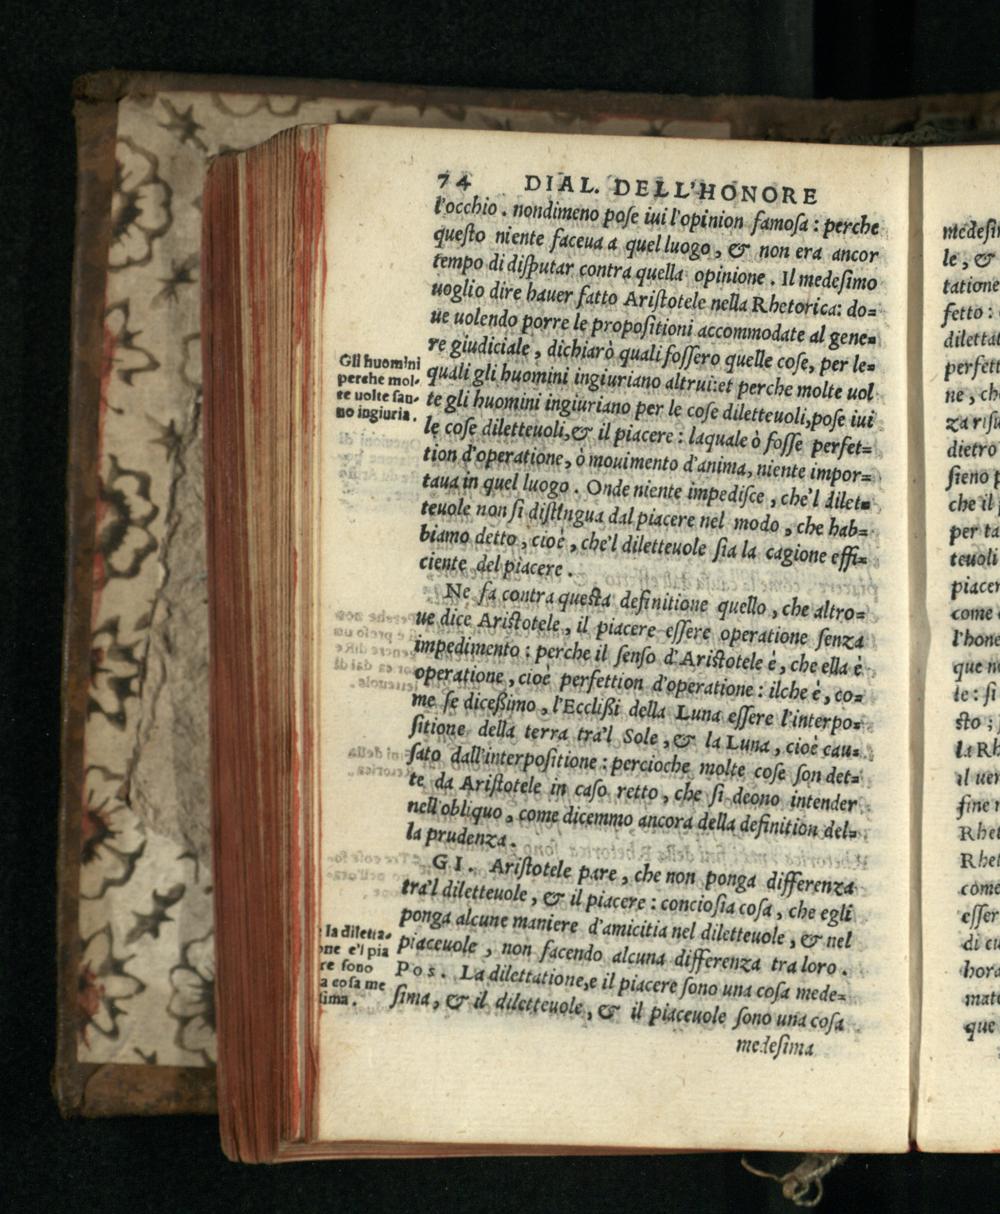 74 DIAL. DELL'HONORE
l'occhio. nondimeno pose iui l'opinion famosa: perche
questo niente faceua a quel luogo, & non era ancor
tempo di disputar contra quella opinione. Il medesimo
uoglio dire hauer fatto Aristotele nella Rhetorica: do=
ue uolendo porre le propositioni accommodate al gene=
re giudiciale, dichiarò quali fossero quelle cose, per le=
quali gli huomini ingiuriano altrui: et perche molte uol
te gli huomini ingiuriano per le cose diletteuoli, pose iui
le cose diletteuoli, & il piacere: laquale ò fosse perfet=
tion d'operatione, ò mouimento d'anima, niente impor=
taua in quel luogo. Onde niente impedisce, che'l dilet=
teuole non si distingua dal piacere nel modo, che hab=
biamo detto, cioè, che'l diletteuole sia la cagione effi=
ciente del piacere.
Ne fa contra questa definitione quello, che altro=
ue dice Aristotele, il piacere essere operatione senza
impedimento: perche il senso d'Aristotele è, che ella è
operatione, cioè perfettion d'operatione: ilche è, co=
me se dicessimo, l'Ecclissi della Luna essere l'interpo=
sitione della terra tra'l Sole, & la Luna, cioè cau=
sato dall'interpositione: percioche molte cose son det=
te da Aristotele in caso retto, che si deono intender
nell'obliquo, come dicemmo ancora della definition del=
la prudenza.
GI. Aristotele pare, che non ponga differenza
tra'l diletteuole, & il piacere: conciosia cosa, che egli
ponga alcune maniere d'amicitia nel diletteuole, & nel
piaceuole, non facendo alcuna differenza tra loro.
POS. La dilettatione, e il piacere sono una cosa mede=
sima, & il diletteuole, & il piaceuole sono una cosa
medesima
Gli huomini
perche mol-
te uolte fan-
no ingiuria.
la diletta-
one e'l pia
re sono
a cosa me
sima.
medesim
le, &
tatione
fetto:
dilettat
perfett
ne, che
za risu
dietro
sieno p
che il
per ta
teuoli
piacer
come
l'hone
que no
le: si
sto;
la Rh
il uer
fine
Rhet
Rhet
come
esser
di cu
hora
mate
que